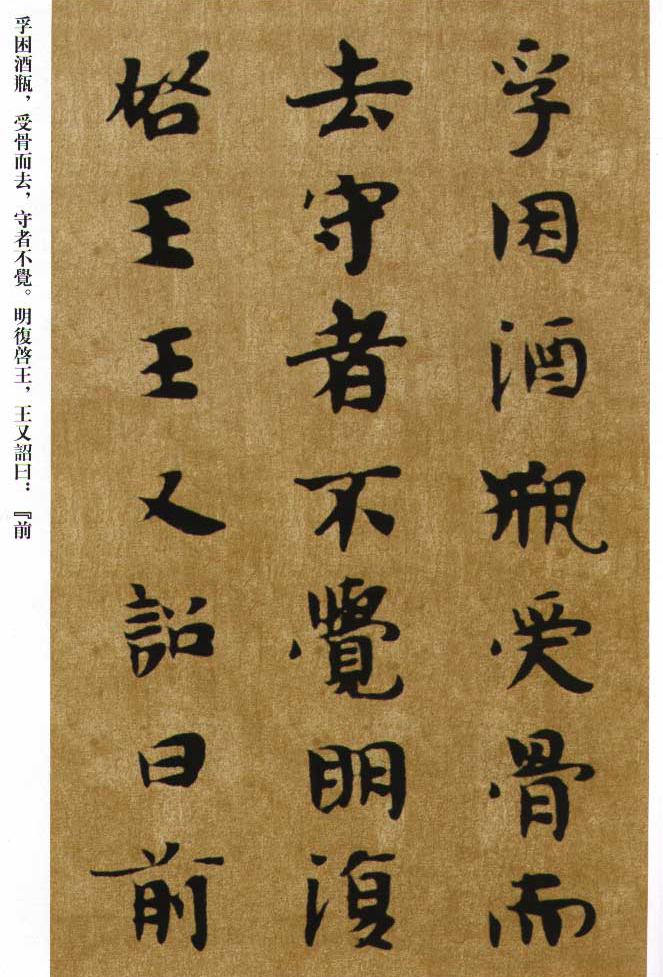 孚困酒瓶受骨而
去守者不覺明復
啓王王又詔曰前
孚困酒瓶，受骨而去，守者不覺。明復啓王，王又詔曰：『前